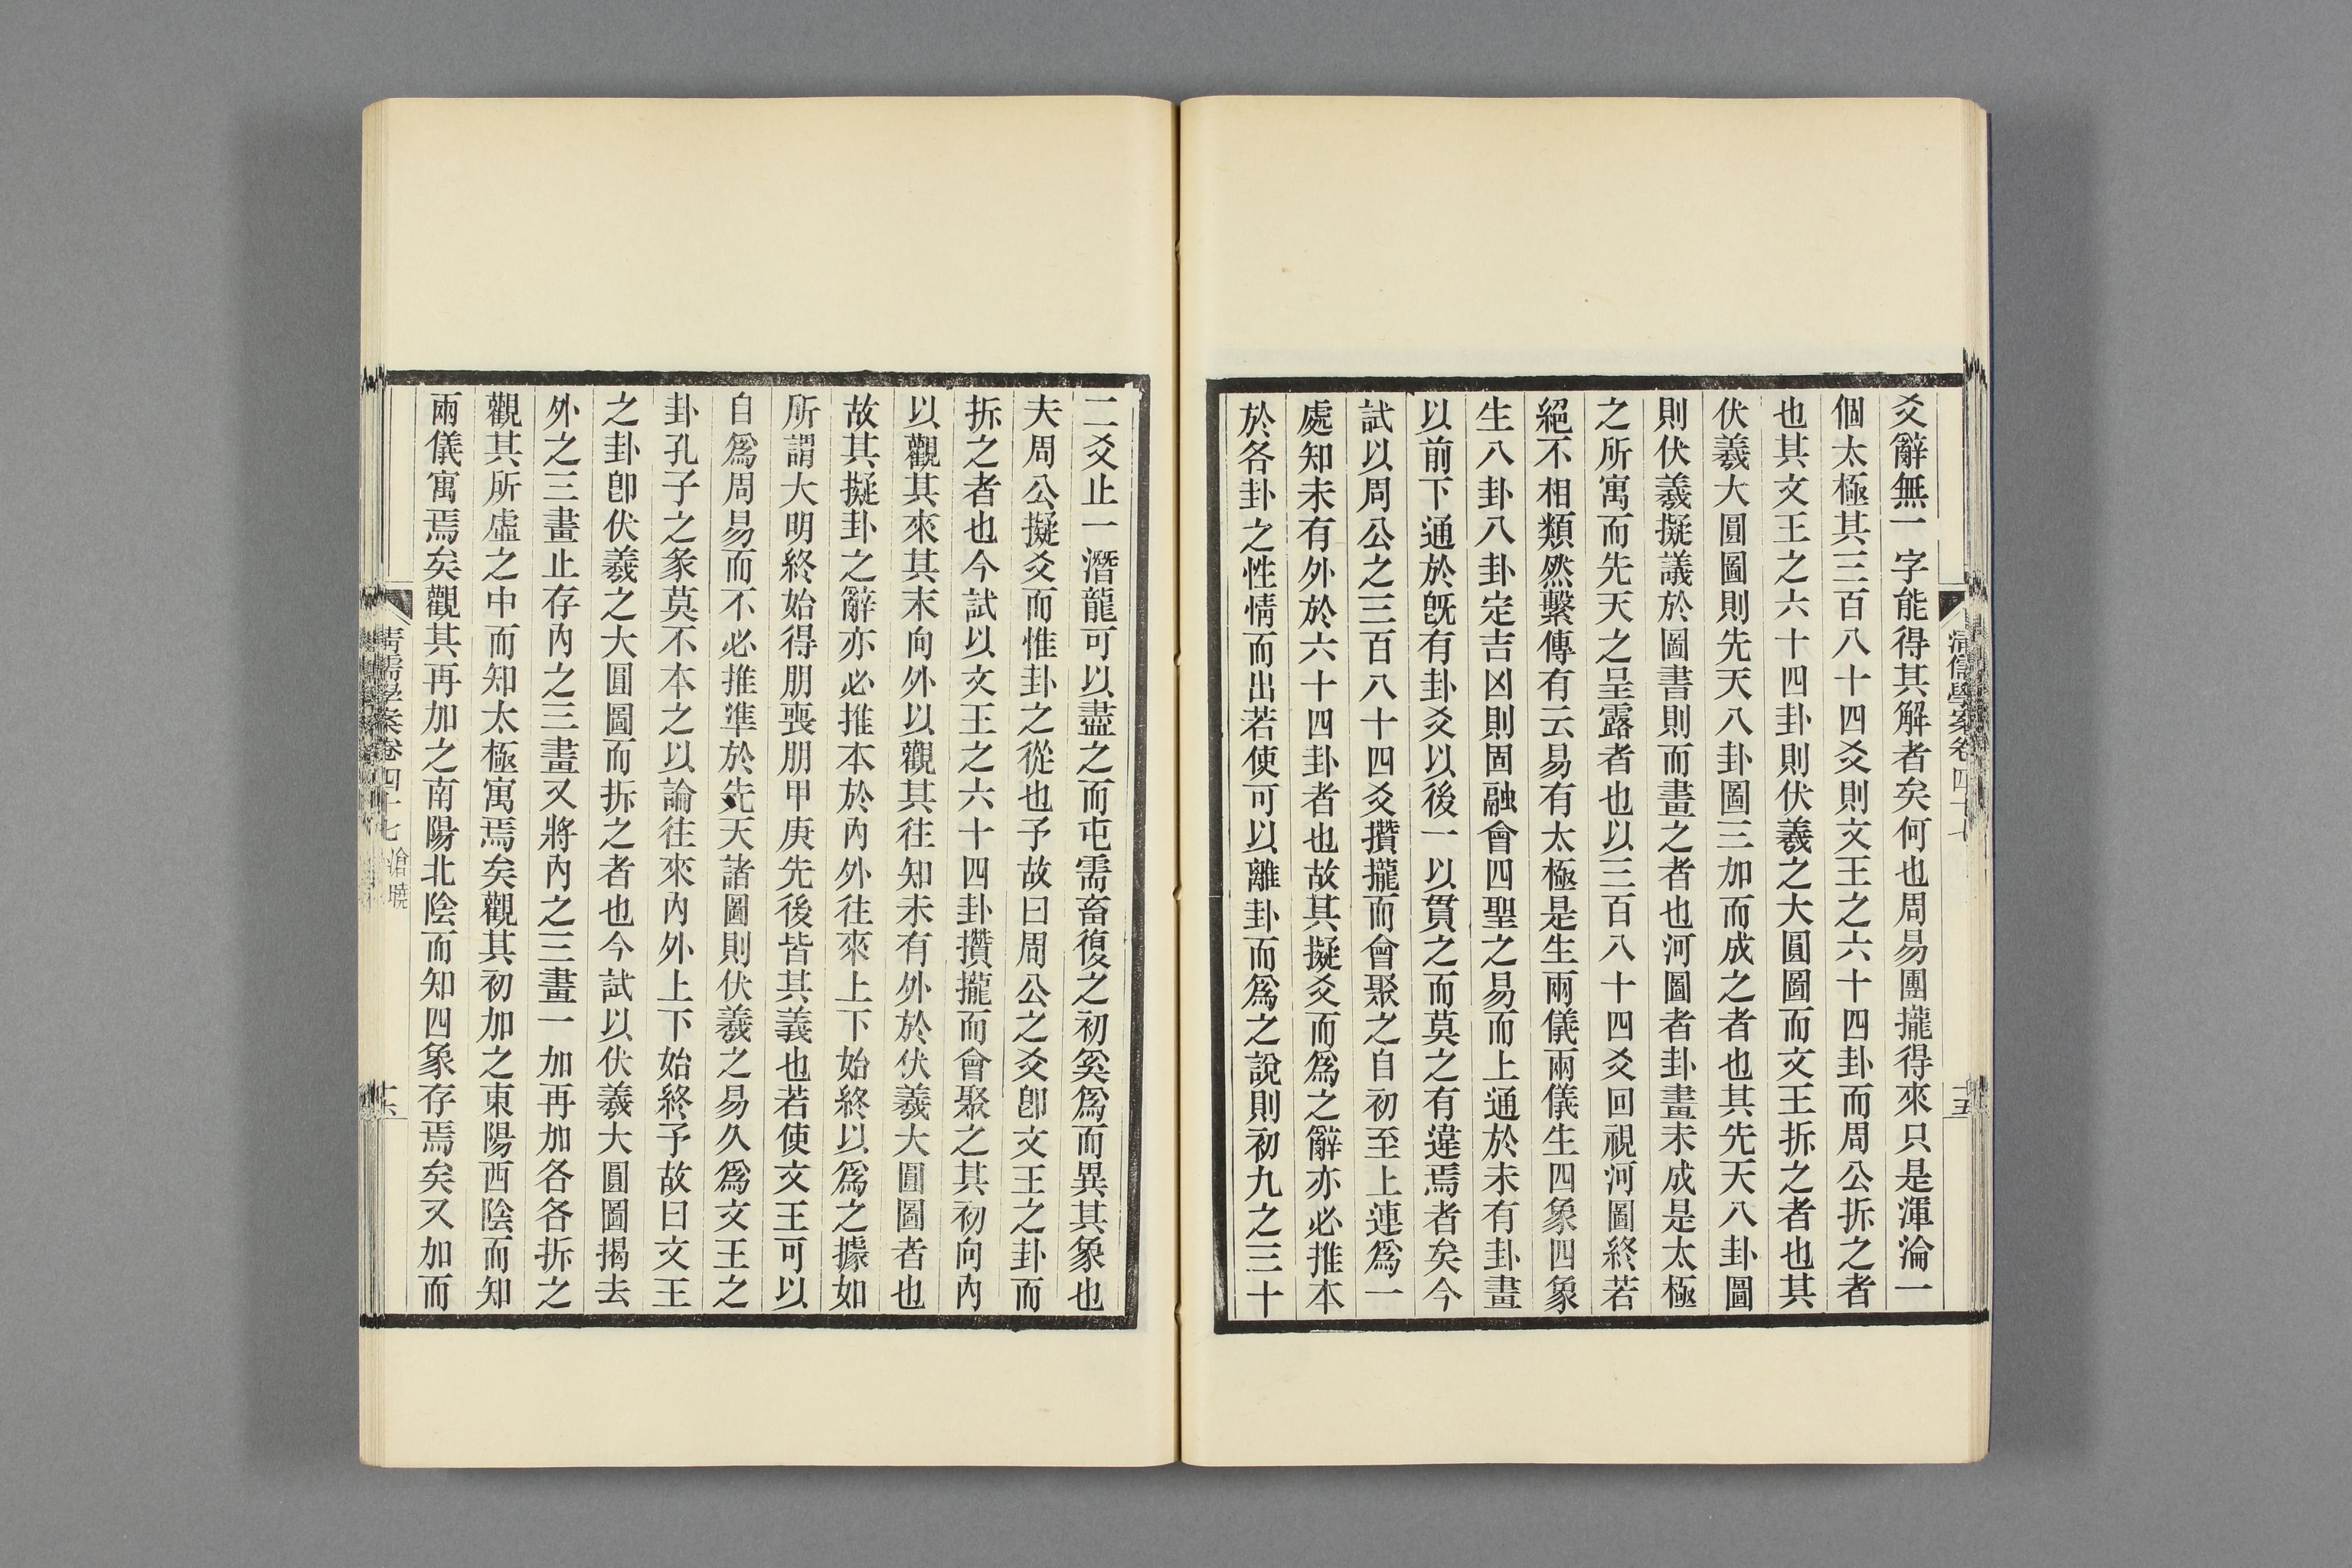 爻辭無一字能得其解者矣何也周易團攏得來只是渾淪一
個太極其三百八十四爻則文王之六十四卦而周公拆之者
也其文王之六十四卦則伏羲之大圓圖而文王拆之者也其
伏羲大圓圖則先天八卦圖三加而成之者也其先天八卦圖
則伏羲擬議於圖書則而畫之者也河圖者卦畫未成是太極
之所寓而先天之呈露者也以三百八十四爻回視河圖終若
絕不相類然繫傳有云易有太極是生兩儀兩儀生四象四象
生八卦八卦定吉凶則固融會四聖之易而上通於未有卦畫
以前下通於旣有卦爻以後一以貫之而莫之有違焉者矣今
試以周公之三百八十四爻攢攏而會聚之自初至上連爲一
處知未有外於六十四卦者也故其擬爻而爲之辭亦必推本
於各卦之性情而出若使可以離卦而爲之說則初九之三十
清儒學案卷四十七
十五
二爻止一潛龍可以盡之而屯需畜復之初奚爲而異其象也
夫周公擬爻而惟卦之從也予故曰周公之爻卽文王之卦而
拆之者也今試以文王之六十四卦攢攏而會聚之其初向內
以觀其來其末向外以觀其往知未有外於伏羲大圓圖者也
故其擬卦之辭亦必推本於內外往來上下始終以爲之據如
所謂大明終始得朋喪朋甲庚先後皆其義也若使文王可以
自爲周易而不必推準於先天諸圖則伏羲之易久爲文王之
卦孔子之象莫不本之以論往來內外上下始終予故曰文王
之卦卽伏羲之大圓圖而拆之者也今試以伏羲大圓圖揭去
外之三畫止存內之三畫又將內之三畫一加再加各各拆之
觀其所虛之中而知太極寓焉矣觀其初加之東陽西陰而知
兩儀寓焉矣觀其再加之南陽北陰而知四象存焉矣又加而
清儒學案卷四十七 滄曉
十六